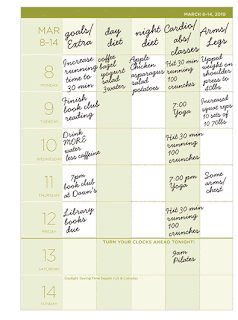 MARCH 8-14, 2010
MAR
8-14
goals/
Extra
day
diet
night
diet
Cardio/
abs/
classes
Arms/
Legs
8
MONDAY
Increase
running
time to
30 min
coffee
bagel
yogurt
salad
3water
Apple
Chicken
asparagus
salad
potatoes
Hit 30 min
running
100
crunches
Upped
weight on
shoulder
press to
40lbs
9
TUESDAY
Finish
book club
reading
7:00
Yoga
Increased
squat ups
10 sets of
10 70lbs
10
WEDNESDAY
Drink
MORE
water
less caffeine
Hit 30 min
running
100
crunches
11
THURSDAY
7pm
book club
at Dawn's
7:00 pm
Yoga
Some
arms/
chest
12
FRIDAY
Library
books
due
Hit 30 min
running
100
crunches
TURN YOUR CLOCKS AHEAD TONIGHT!
13
SATURDAY
9am
Pilates
Daylight Saving Time begins (US & Canada)
14
SUNDAY